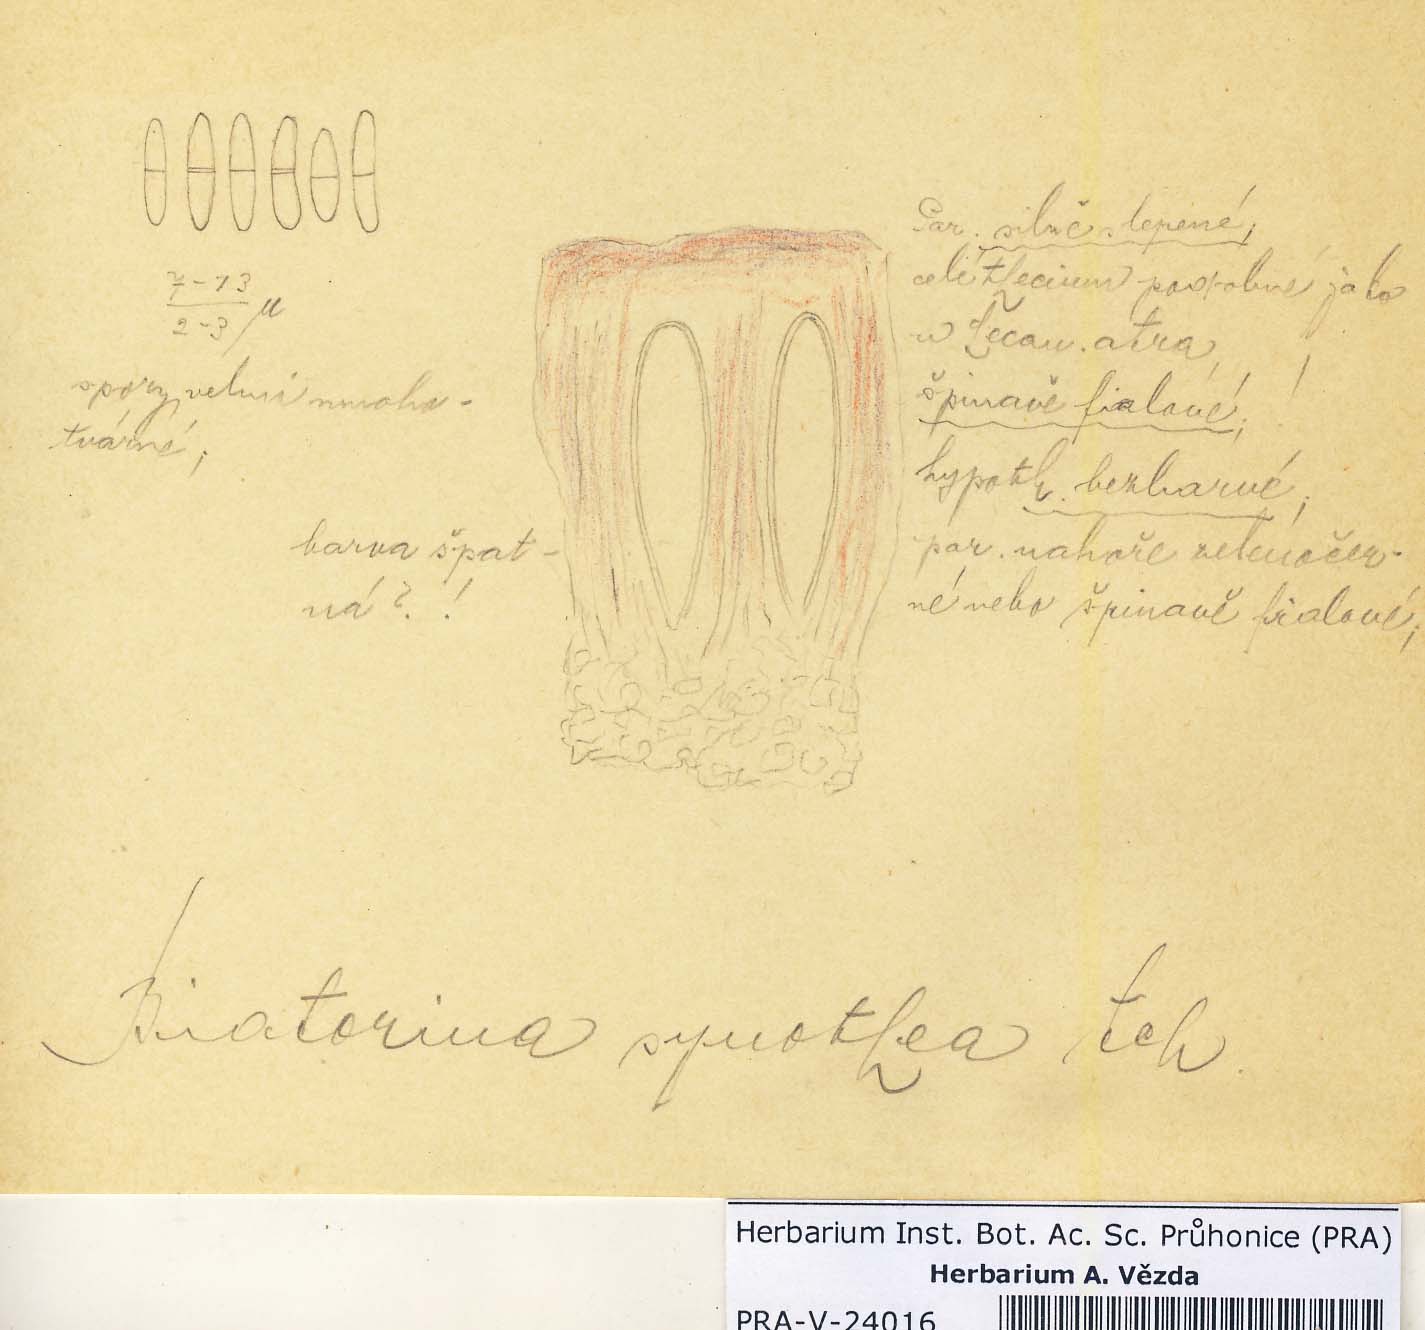 7-13
2-3 µ
spory velmi mnoho-
tvárné;
barva špat-
ná?!
Par. silně slepené;
celé thecium podobné jako
u Lecan. atra,
špinavě fialové; !
hypoth. bezbarvé;
par. nahoře zelenočer-
né nebo špinavě fialové;
Biatorina synothea Ach.
Herbarium Inst. Bot. Ac. Sc. Průhonice (PRA)
Herbarium A. Vězda
PRA-V-24016